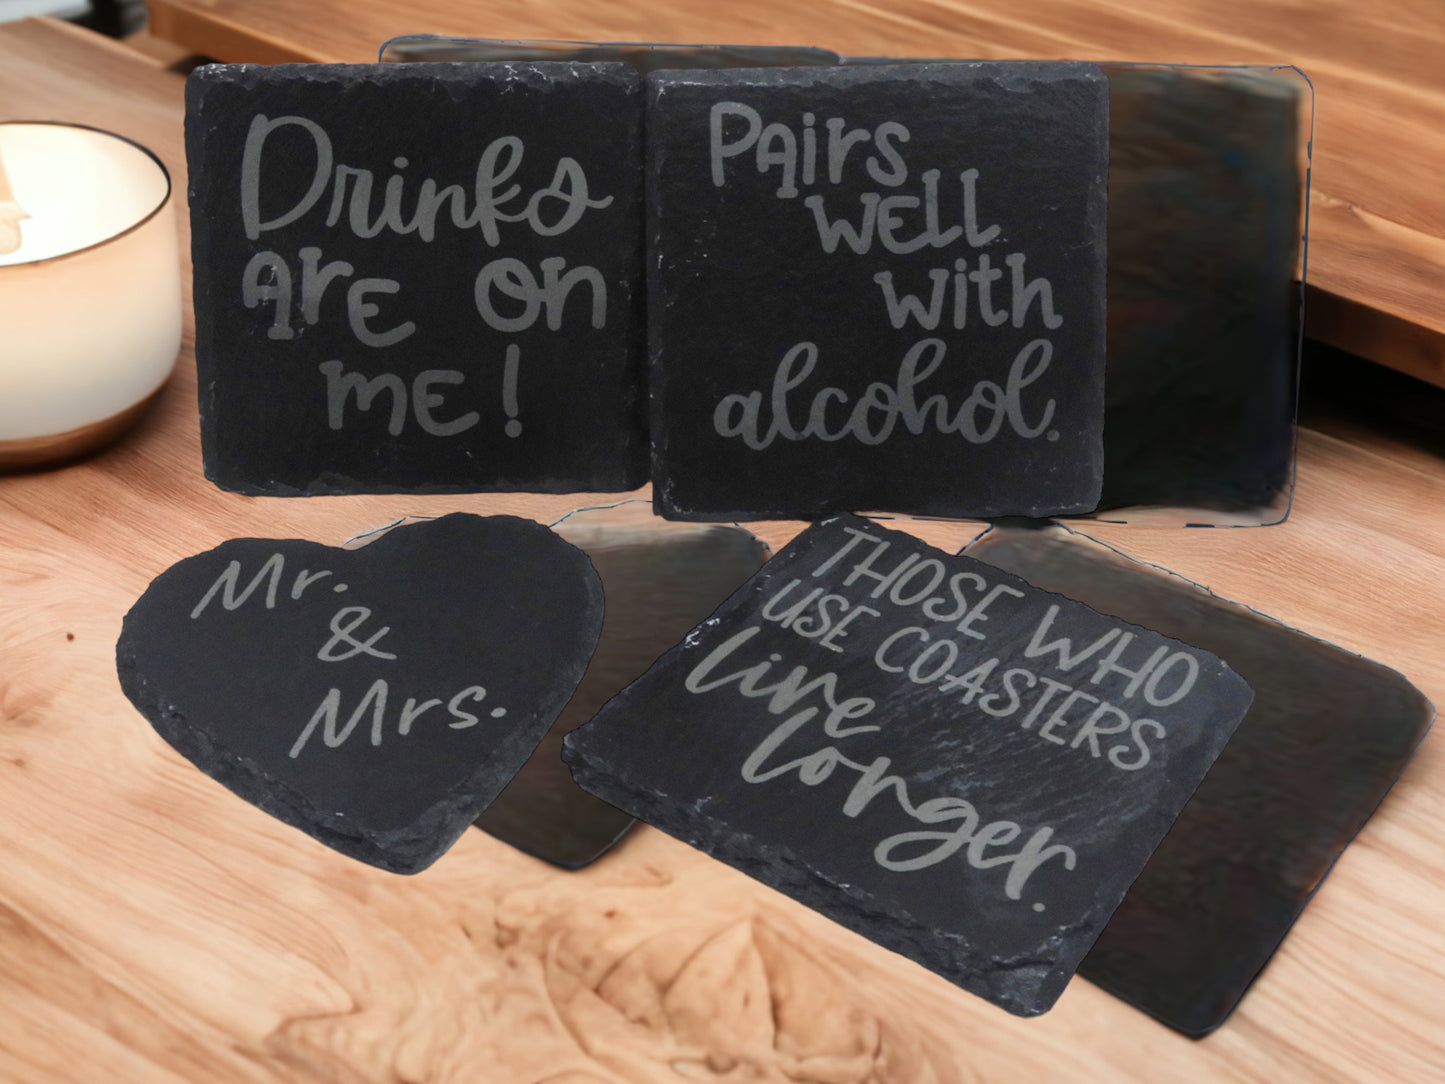 Drinks
are on
me!
Pairs
well
with
alcohol.
Mr.
&
Mrs.
THOSE WHO
USE COASTERS
live
longer.